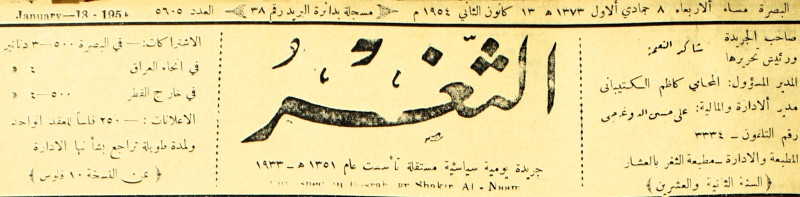 البصرة مساء الاربعاء ٨ جمادي الاول ١٣٧٣ هـ ١٣ كانون الثاني ١٩٥٤ م
مسجلة بدائرة البريد رقم ٣٨
العدد ٥٦٠٥
January—13 - 195
صاحب الجريدة
ورئيس تحريرها
شاكر النعمة
المدير المسؤول: المحامي كاظم السكتيباني
مدير الادارة والمالية: علي حسين
رقم التلفون ــ ٣٣٣٤
المطبعة والادارة ــ مطبعة الثغر بالعشار
﴿ السنة الثانية والعشرين ﴾
الثغر
جريدة يومية سياسية مستقلة تأسست عام ١٣٥١ هـ ــ ١٩٣٣
Shakir Al - Naam
الاشتراكات: — في البصرة ٥٠٠—٣ دنانير
في انحاء العراق ٤ »
في خارج القطر ٥٠٠—٤ »
الاعلانات: — ٢٥٠ فلساً للعقد الواحد
ولمدة طويلة تراجع بشأنها الادارة
﴿ ثمن النسخة ١٠ فلوس ﴾